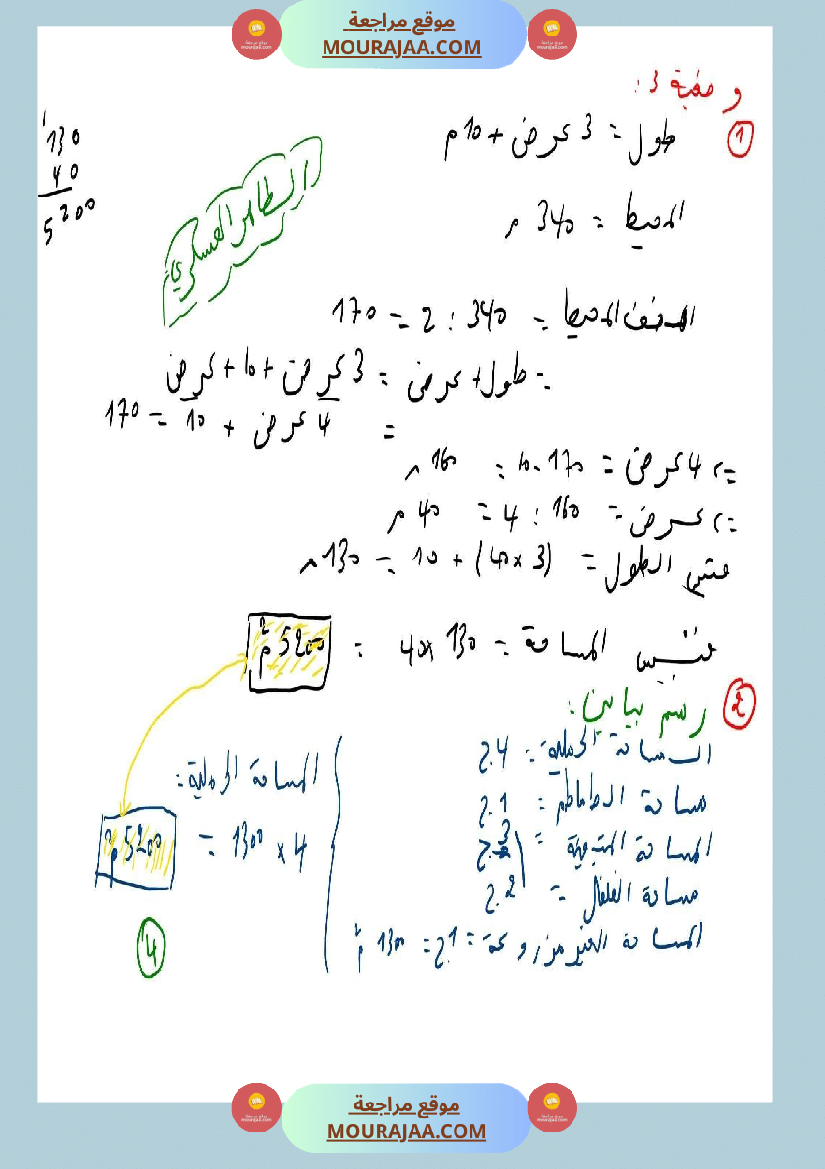 موقع مراجعة
MOURAJAA.COM
وضعية 3 :
1
طول = 3 عرض + 10 م
المحيط = 340 م
130
40
5200
نصف المحيط = 340 : 2 = 170
= طول + عرض = 3 عرض + 10 + عرض
= 4 عرض + 10 = 170
=> 4 عرض = 170 - 10 = 160 م
=> عرض = 160 : 4 = 40 م
الطول = (3 × 40) + 10 = 130 م
المساحة = 130 × 40 = 5200 م2
2
رسم بياني :
المساحة الجملية = 4 ج
مساحة الطماطم : 1 ج
المساحة المتبقية = 3 ج
مساحة الفلفل = 2 ج
المساحة الغير مزروعة = 1 ج = 1300 م2
المساحة الجملية :
4 × 1300 = 5200 م2
4
موقع مراجعة
MOURAJAA.COM